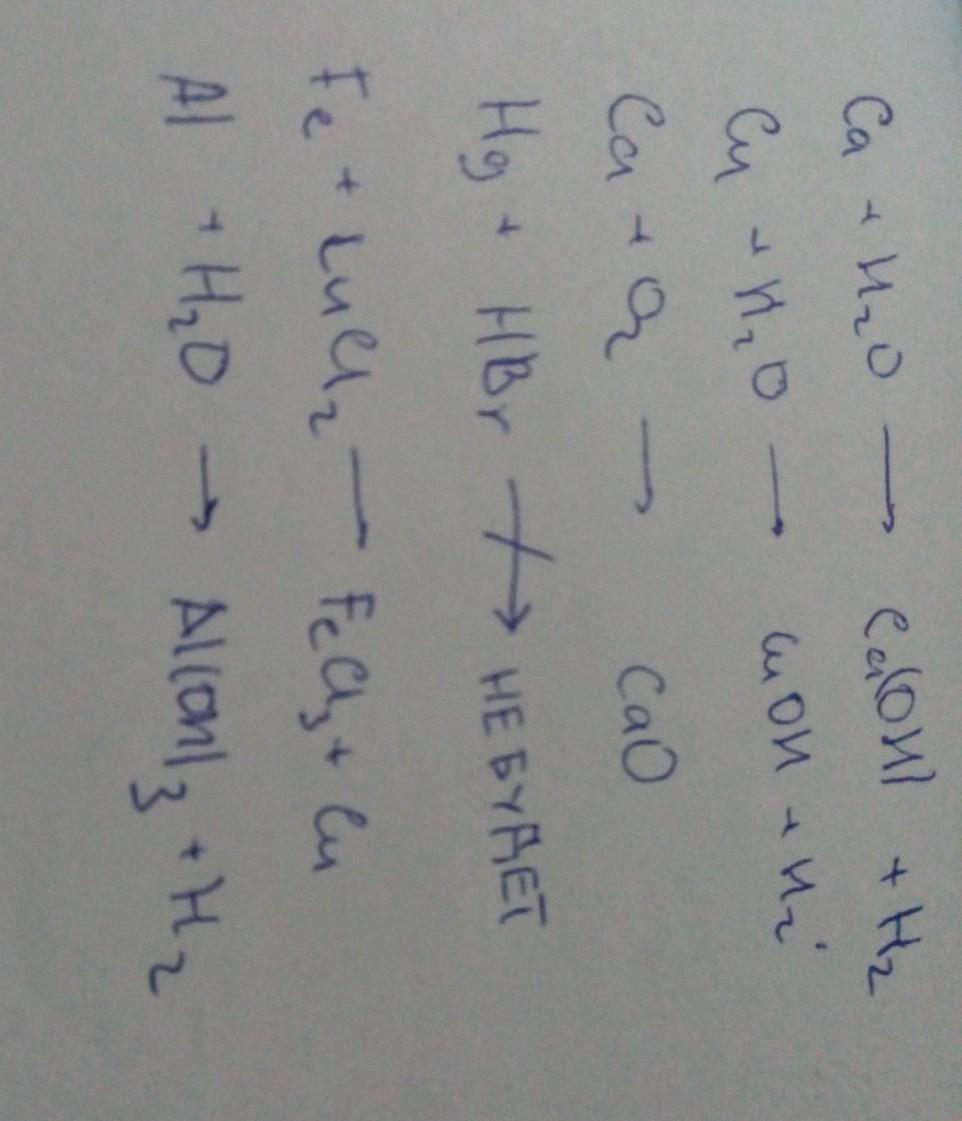 Ca + H₂O → Ca(OH) + H₂
Cu + H₂O → CuOH + H₂
Ca + O₂ → CaO
Hg + HBr ↛ НЕ БУДЕТ
Fe + CuCl₂ — FeCl₃ + Cu
Al + H₂O → Al(OH)₃ + H₂